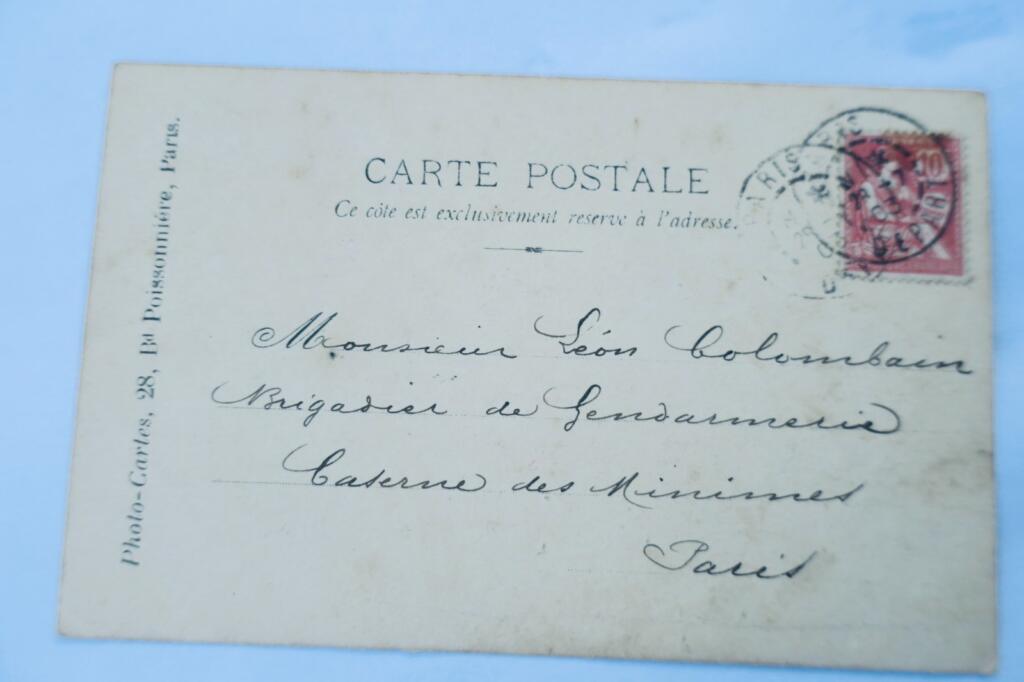 CARTE POSTALE
Ce côte est exclusivement reserve à l'adresse.
Photo-Cartes, 28, Bd Poissonnière, Paris.
10
PARIS
DEPART
03
Monsieur Léon Colombain
Brigadier de Gendarmerie
Caserne des Minimes
Paris